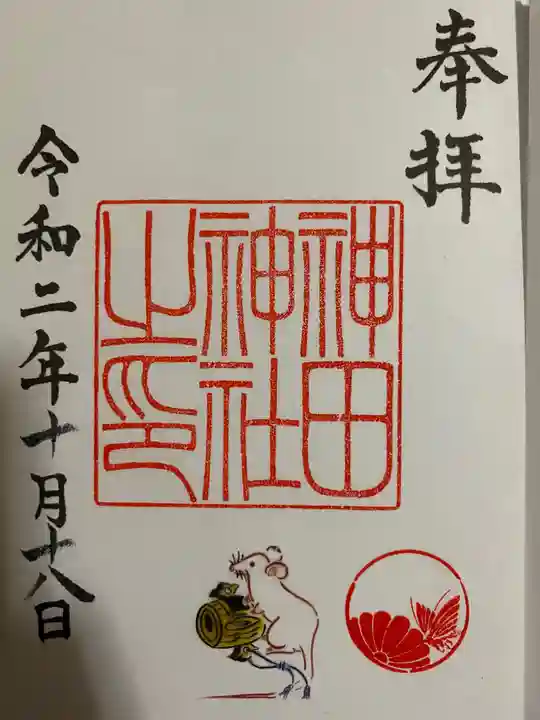 奉拝
神田
神社
之印
令和二年十月十八日